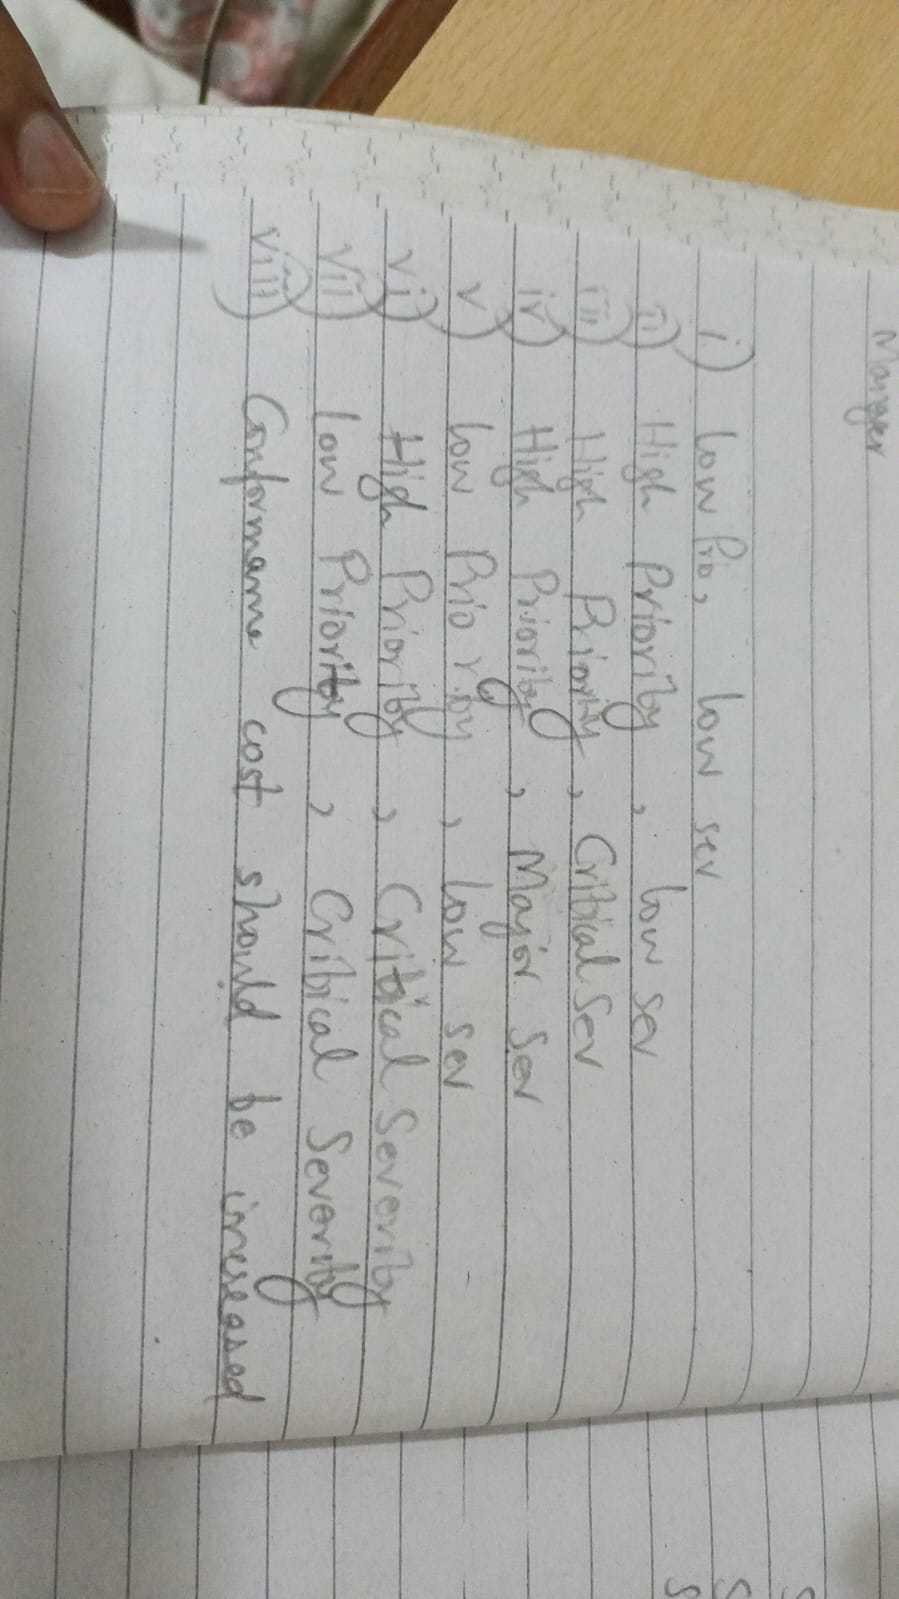 Manager
i) Low Prio, low sev
ii) High Priority, low sev
iii) High Priority, Critical Sev
iv) High Priority, Major Sev
v) low Priority, low sev
vi) High Priority, Critical Severity
vii) low Priority, Critical Severity
viii) Conformance cost should be increased